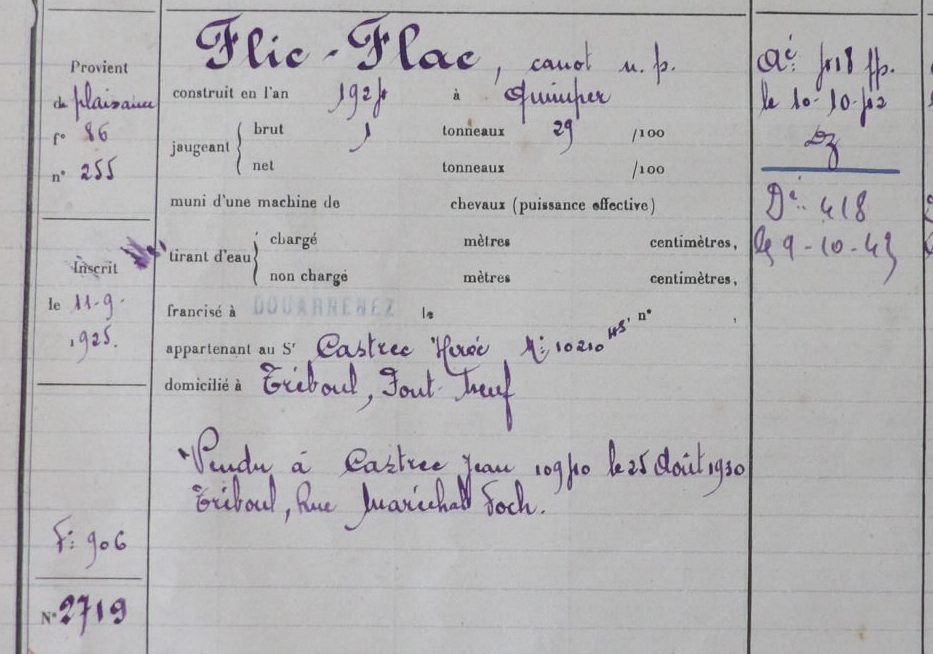 Provient
de plaisance
f° 86
n° 255
Inscrit
le 11-9-
1925.
F: 906
N° 2719
Flic-Flac, canot n. p.
construit en l'an à Quimper
jaugeant brut 1 tonneaux 29 /100
net tonneaux /100
muni d'une machine de chevaux (puissance effective)
tirant d'eau chargé mètres centimètres,
non chargé mètres centimètres,
francisé à DOUARNENEZ le n° ,
appartenant au Sr Castrec 10210 HS
domicilié à Tréboul,
Vendu à Castrec Jean le 25 Août 1930
Tréboul, Rue Maréchal Foch.
le 10-10-42
Dz
Dé: 418
le 9-10-43